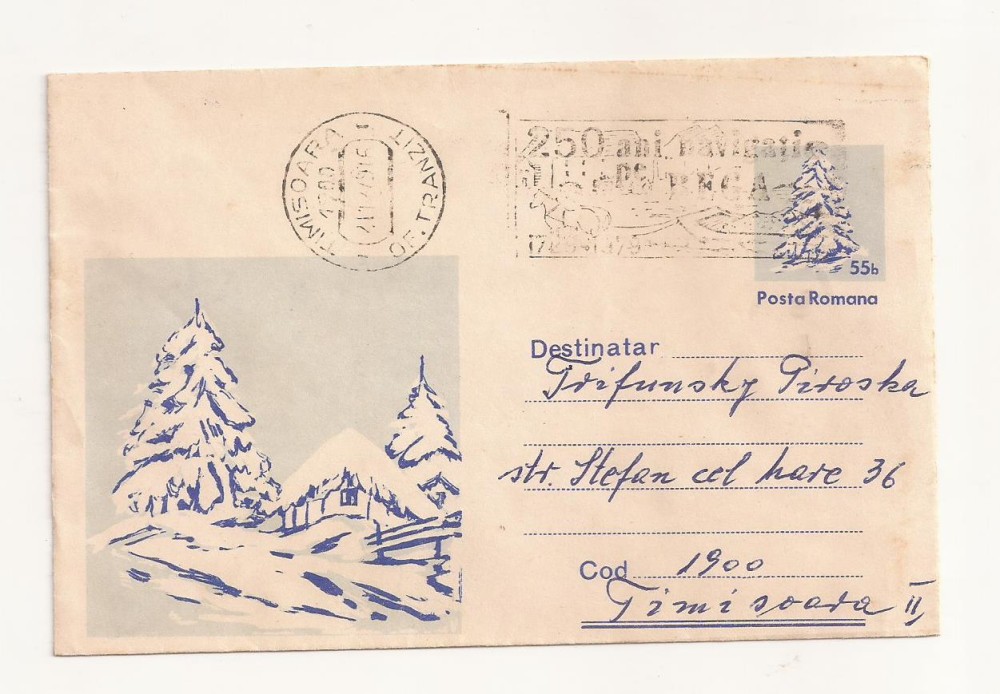 TIMISOARA
1780
OF. TRANZIT
250 ani navigati
PE BEGA
55b
Posta Romana
Destinatar
Trifunsky Piroska
str. Stefan cel Mare 36
Cod 1900
Timisoara II,